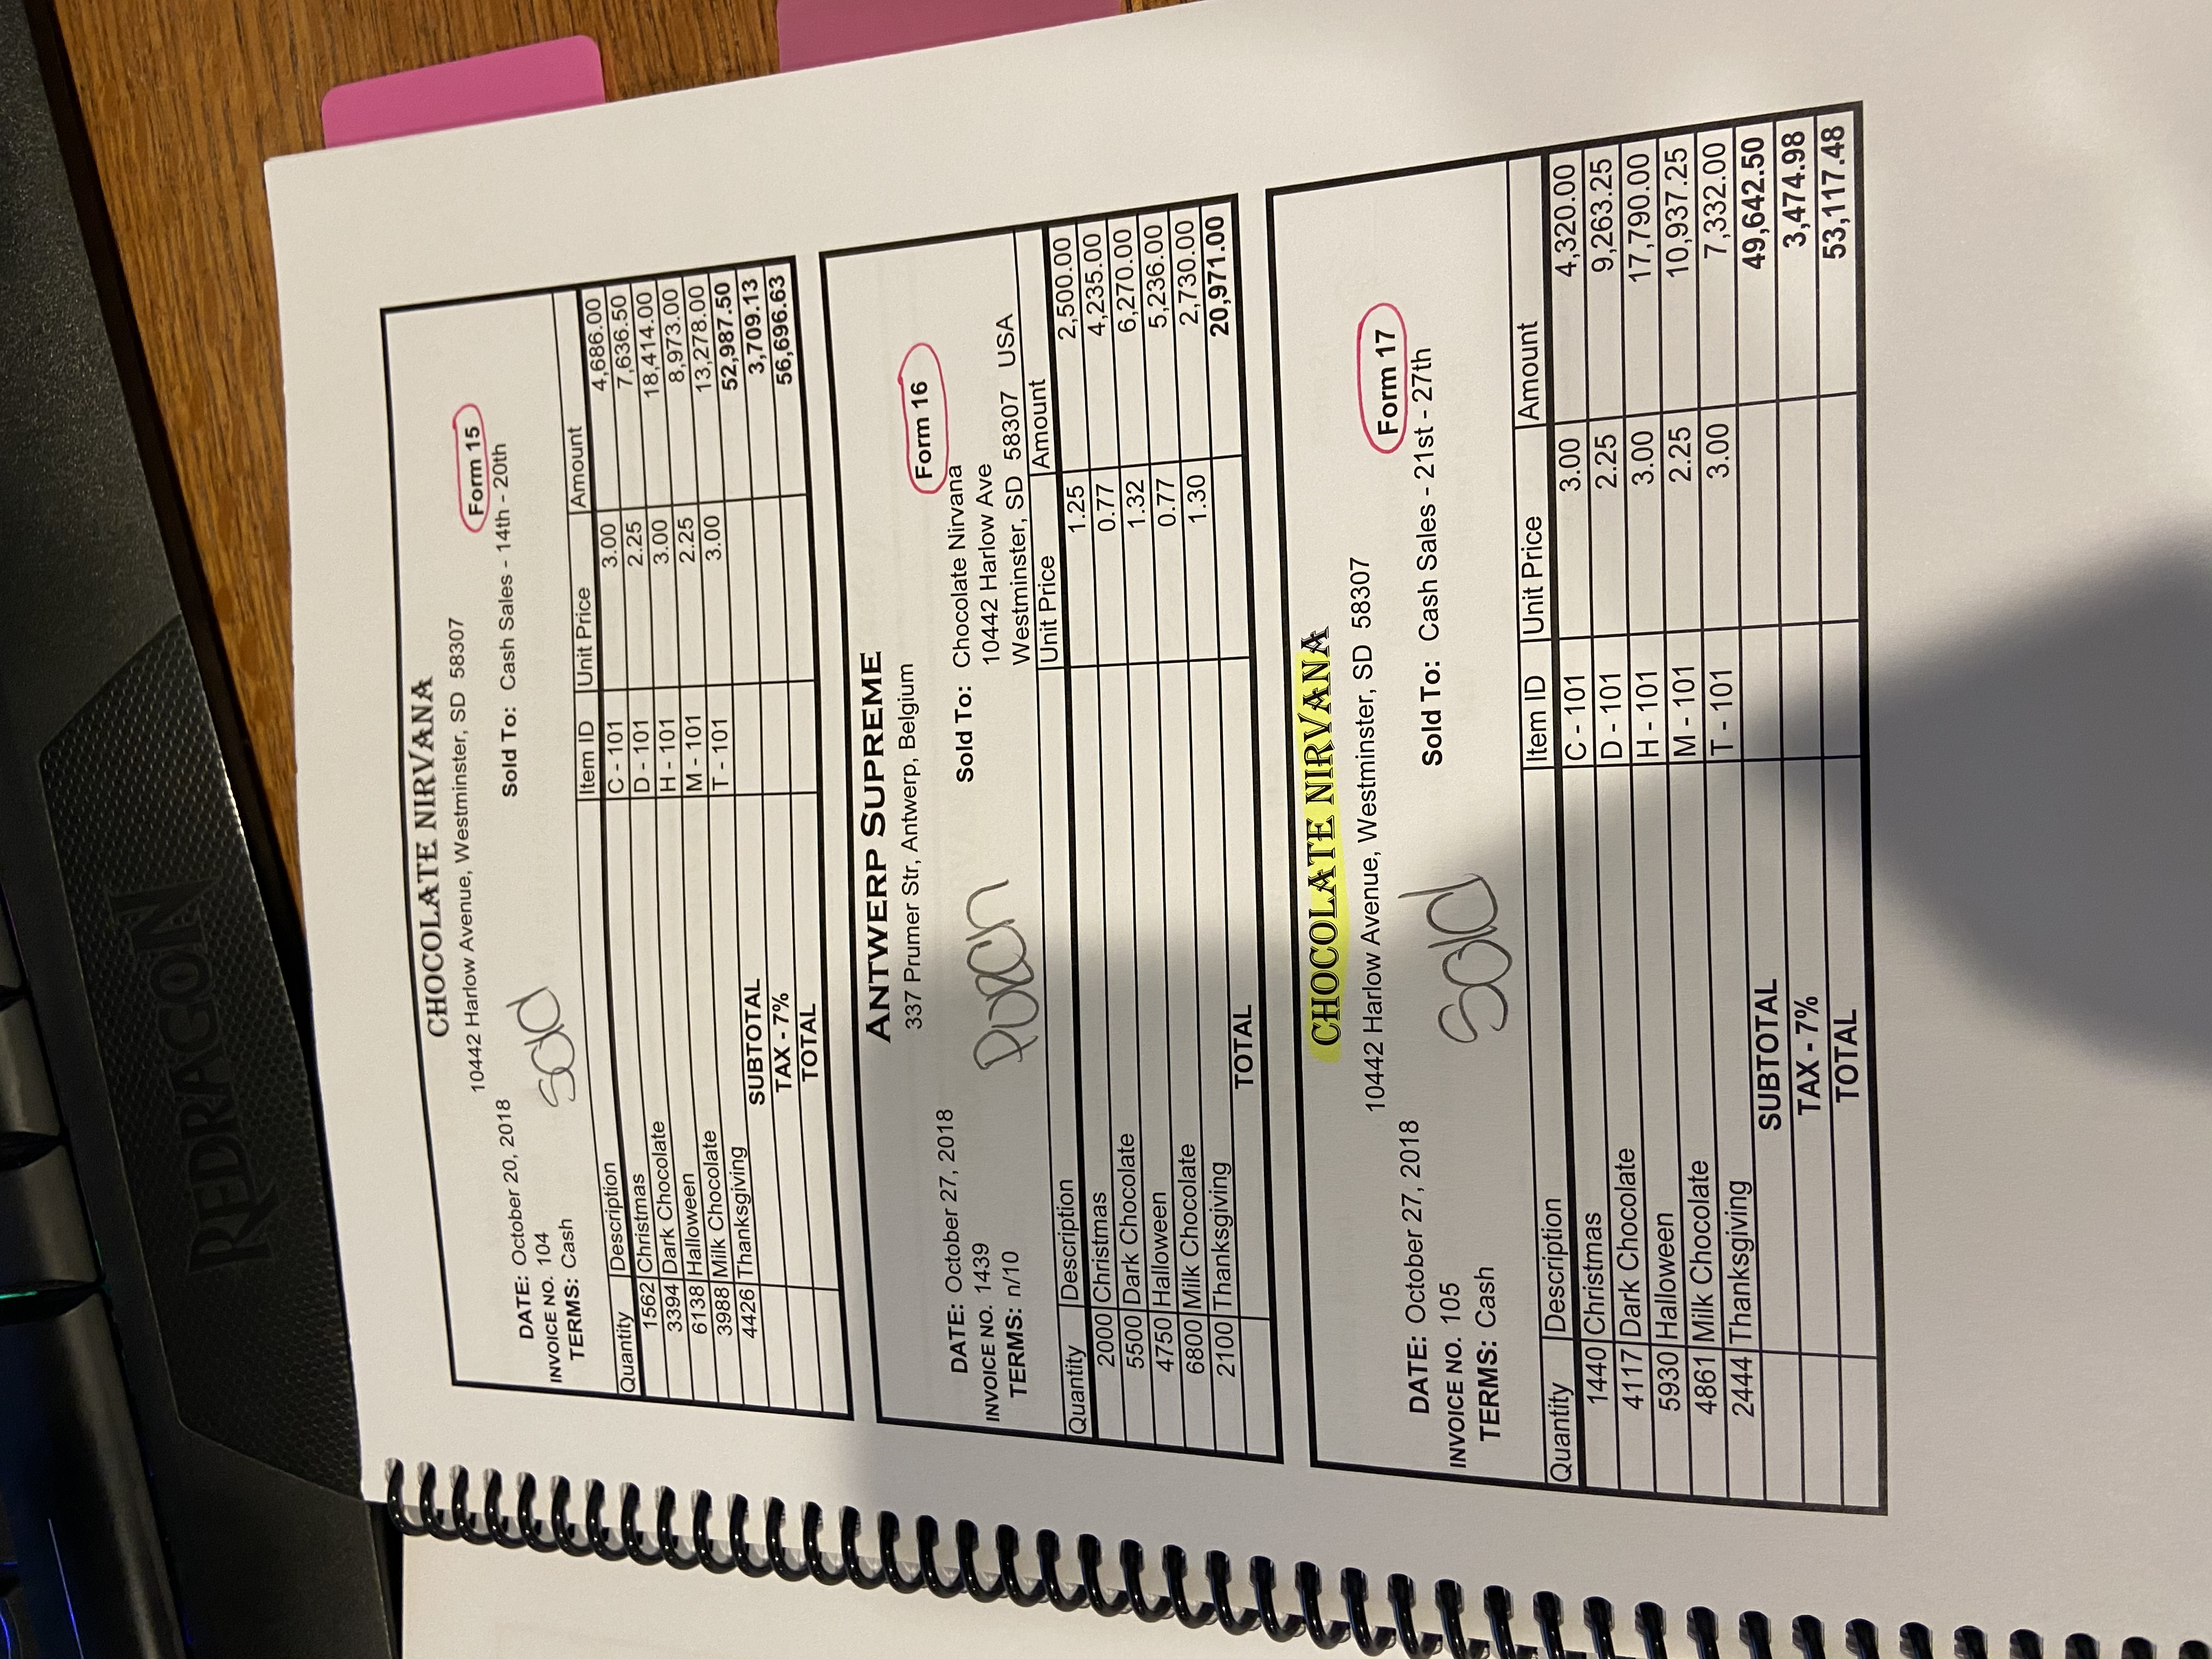 REDRAGON
CHOCOLATE NIRVANA
10442 Harlow Avenue, Westminster, SD 58307
Form 15
DATE: October 20, 2018
Sold To: Cash Sales - 14th - 20th
INVOICE NO. 104
TERMS: Cash
Sold
Quantity Description Item ID Unit Price Amount
1562 Christmas C - 101 3.00 4,686.00
3394 Dark Chocolate D - 101 2.25 7,636.50
6138 Halloween H - 101 3.00 18,414.00
3988 Milk Chocolate M - 101 2.25 8,973.00
4426 Thanksgiving T - 101 3.00 13,278.00
SUBTOTAL 52,987.50
TAX - 7% 3,709.13
TOTAL 56,696.63
ANTWERP SUPREME
337 Prumer Str, Antwerp, Belgium
Form 16
DATE: October 27, 2018
Sold To: Chocolate Nirvana
INVOICE NO. 1439
10442 Harlow Ave
TERMS: n/10
Westminster, SD 58307 USA
purch
Quantity Description Unit Price Amount
2000 Christmas 1.25 2,500.00
5500 Dark Chocolate 0.77 4,235.00
4750 Halloween 1.32 6,270.00
6800 Milk Chocolate 0.77 5,236.00
2100 Thanksgiving 1.30 2,730.00
TOTAL 20,971.00
CHOCOLATE NIRVANA
10442 Harlow Avenue, Westminster, SD 58307
Form 17
DATE: October 27, 2018
Sold To: Cash Sales - 21st - 27th
INVOICE NO. 105
TERMS: Cash
Sold
Quantity Description Item ID Unit Price Amount
1440 Christmas C - 101 3.00 4,320.00
4117 Dark Chocolate D - 101 2.25 9,263.25
5930 Halloween H - 101 3.00 17,790.00
4861 Milk Chocolate M - 101 2.25 10,937.25
2444 Thanksgiving T - 101 3.00 7,332.00
SUBTOTAL 49,642.50
TAX - 7% 3,474.98
TOTAL 53,117.48